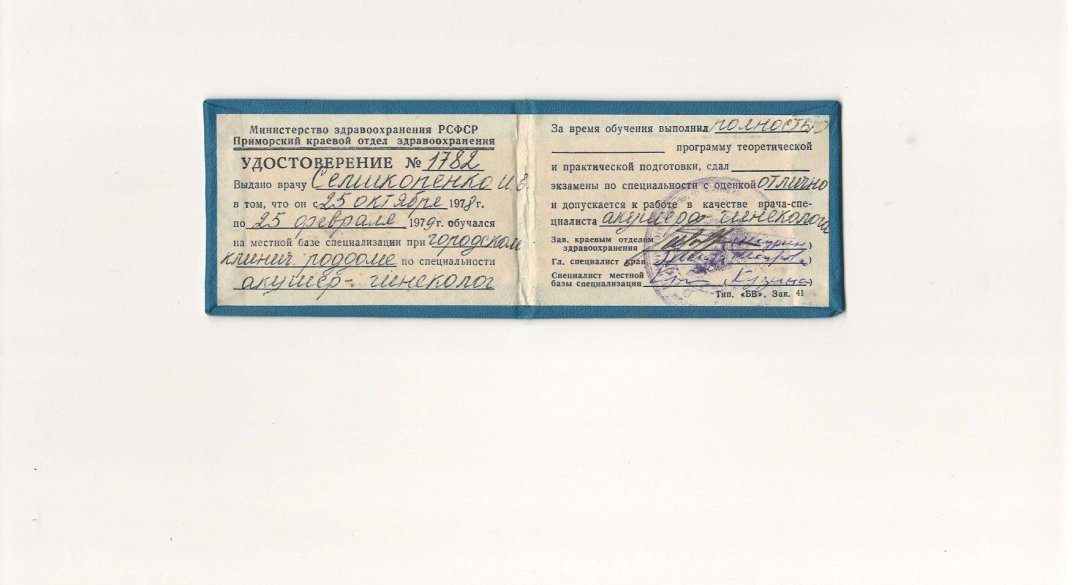 Министерство здравоохранения РСФСР
Приморский краевой отдел здравоохранения
УДОСТОВЕРЕНИЕ № 1782
Выдано врачу Селикопенко И. В.
в том, что он с 25 октября 1978 г.
по 25 февраля 1979 г. обучался
на местной базе специализации при городском
клинич. роддоме по специальности
акушер-гинеколог
За время обучения выполнил полностью
программу теоретической
и практической подготовки, сдал
экзамены по специальности с оценкой отлично
и допускается к работе в качестве врача-спе-
циалиста акушера-гинеколога
Зав. краевым отделом
здравоохранения
Гл. специалист края
Специалист местной
базы специализации (Кузина)
Тип. «БВ». Зак. 41